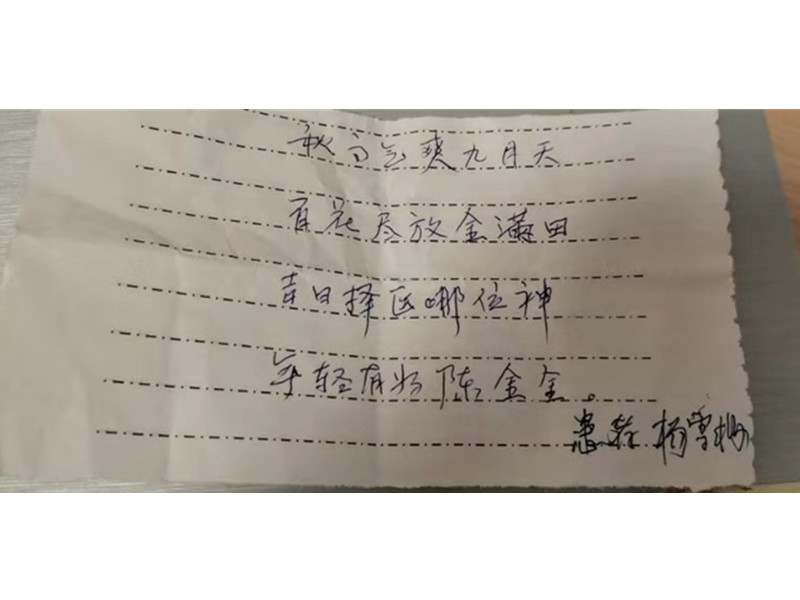 秋高气爽九月天
百花尽放金满田
吉日择医哪位神
年轻有为陈金全。
患者 杨雪梅